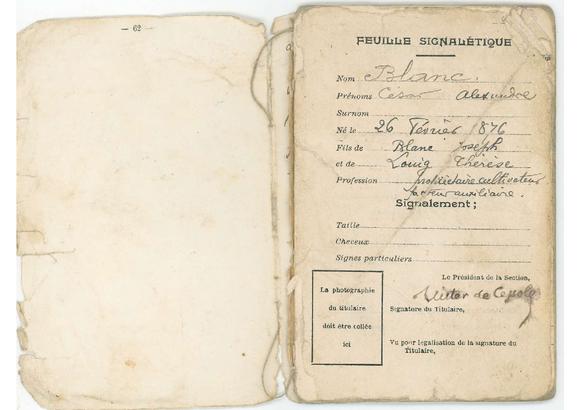 — 62 —
FEUILLE SIGNALÉTIQUE
Nom Blanc.
Prénoms César Alexandre
Surnom
Né le 26 Février 1876
Fils de Blanc Joseph
et de Louig Thérèse
Profession propriétaire cultivateur
facteur auxiliaire.
Signalement ;
Taille
Cheveux
Signes particuliers
Le Président de la Section,
La photographie
du titulaire
doit être collée
ici
Signature du Titulaire,
Vu pour légalisation de la signature du
Titulaire,